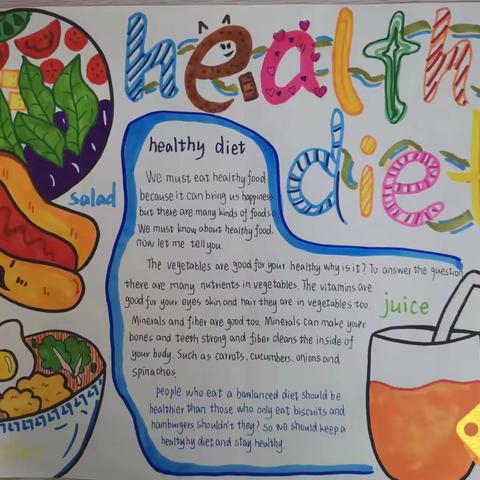 health
diet
healthy diet
We must eat healthy food
because it can bring us happiness
but there are many kinds of foods
We must know about healthy food.
now let me tell you.
The vegetables are good for your healthy why is it? To answer the question
there are many nutrients in vegetables. The vitamins are
good for your eyes skin and hair they are in vegetables too
Minerals and fiber are good too. Minerals can make your
bones and teeth strong and fiber cleans the inside of
your body. Such as carrots, cucumbers, onions and
spinaches.
people who eat a banlanced diet should be
healthier than those who only eat biscuits and
hamburgers shouldn't they? So we should keep a
healtyhy diet and stay healthy.
salad
juice